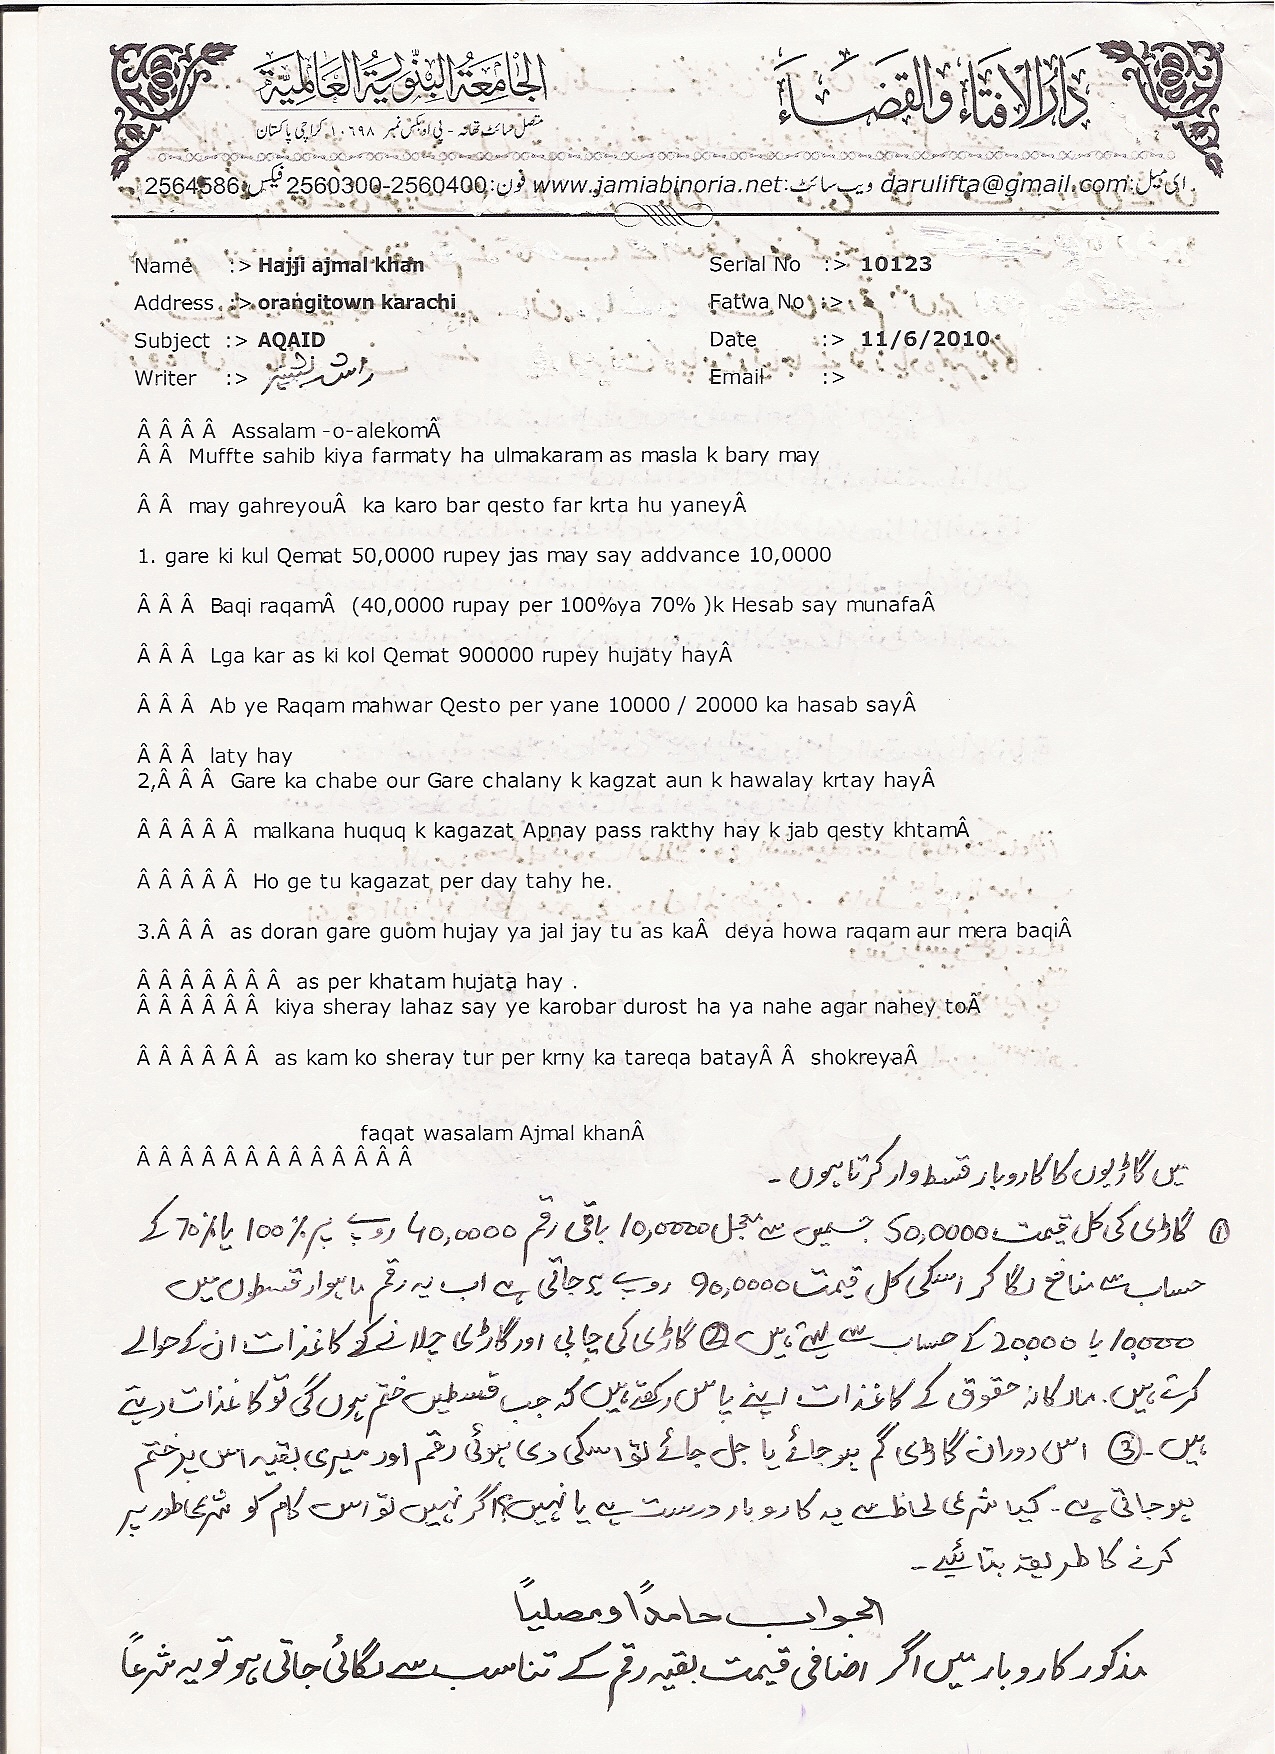 دارالافتاء والقضاء
الجامعة البنورية العالمية
متصل سائٹ تھانہ - پی او بکس نمبر ۱۰۶۹۸ کراچی پاکستان
ای میل: darulifta@gmail.com ویب سائٹ: www.jamiabinoria.net فون: 2560300-2560400 فیکس: 2564586
Name :> Hajji ajmal khan Serial No :> 10123
Address :> orangitown karachi Fatwa No :>
Subject :> AQAID Date :> 11/6/2010
Writer :> Email :>
Â Â Â Â Assalam -o-alekomÂ
Â Â Muffte sahib kiya farmaty ha ulmakaram as masla k bary may
Â Â may gahreyouÂ ka karo bar qesto far krta hu yaneyÂ
1. gare ki kul Qemat 50,0000 rupey jas may say addvance 10,0000
Â Â Â Baqi raqamÂ (40,0000 rupay per 100%ya 70% )k Hesab say munafaÂ
Â Â Â Lga kar as ki kol Qemat 900000 rupey hujaty hayÂ
Â Â Â Ab ye Raqam mahwar Qesto per yane 10000 / 20000 ka hasab sayÂ
Â Â Â laty hay
2,Â Â Â Gare ka chabe our Gare chalany k kagzat aun k hawalay krtay hayÂ
Â Â Â Â Â malkana huquq k kagazat Apnay pass rakthy hay k jab qesty khtamÂ
Â Â Â Â Â Ho ge tu kagazat per day tahy he.
3.Â Â Â as doran gare guom hujay ya jal jay tu as kaÂ deya howa raqam aur mera baqiÂ
Â Â Â Â Â Â Â as per khatam hujata hay .
Â Â Â Â Â Â kiya sheray lahaz say ye karobar durost ha ya nahe agar nahey toÂ
Â Â Â Â Â Â as kam ko sheray tur per krny ka tareqa batayÂ Â shokreyaÂ
faqat wasalam Ajmal khanÂ
Â Â Â Â Â Â Â Â Â Â Â Â Â
میں گاڑیوں کا کاروبار قسط وار کرتا ہوں۔
① گاڑی کی کل قیمت 50,0000 جسمیں سے معجل 10,0000 باقی رقم 40,0000 روپے پر 100% یا 70% کے
حساب سے منافع لگا کر اسکی کل قیمت 90,0000 روپے ہو جاتی ہے اب یہ رقم ماہوار قسطوں میں
10,000 یا 20,000 کے حساب سے لیتے ہیں ② گاڑی کی چابی اور گاڑی چلانے کے کاغذات ان کے حوالے
کرتے ہیں۔ مالکانہ حقوق کے کاغذات اپنے پاس رکھتے ہیں کہ جب قسطیں ختم ہوں گی تو کاغذات دیتے
ہیں۔ ③ اس دوران گاڑی گم ہو جائے یا جل جائے تو اسکی دی ہوئی رقم اور میری بقیہ اس پر ختم
ہو جاتی ہے۔ کیا شرعی لحاظ سے یہ کاروبار درست ہے یا نہیں؟ اگر نہیں تو اس کام کو شرعی طور پر
کرنے کا طریقہ بتائیے۔
الجواب حامداً ومصلیاً
مذکور کاروبار میں اگر اضافی قیمت بقیہ رقم کے تناسب سے لگائی جاتی ہو تو یہ شرعاً